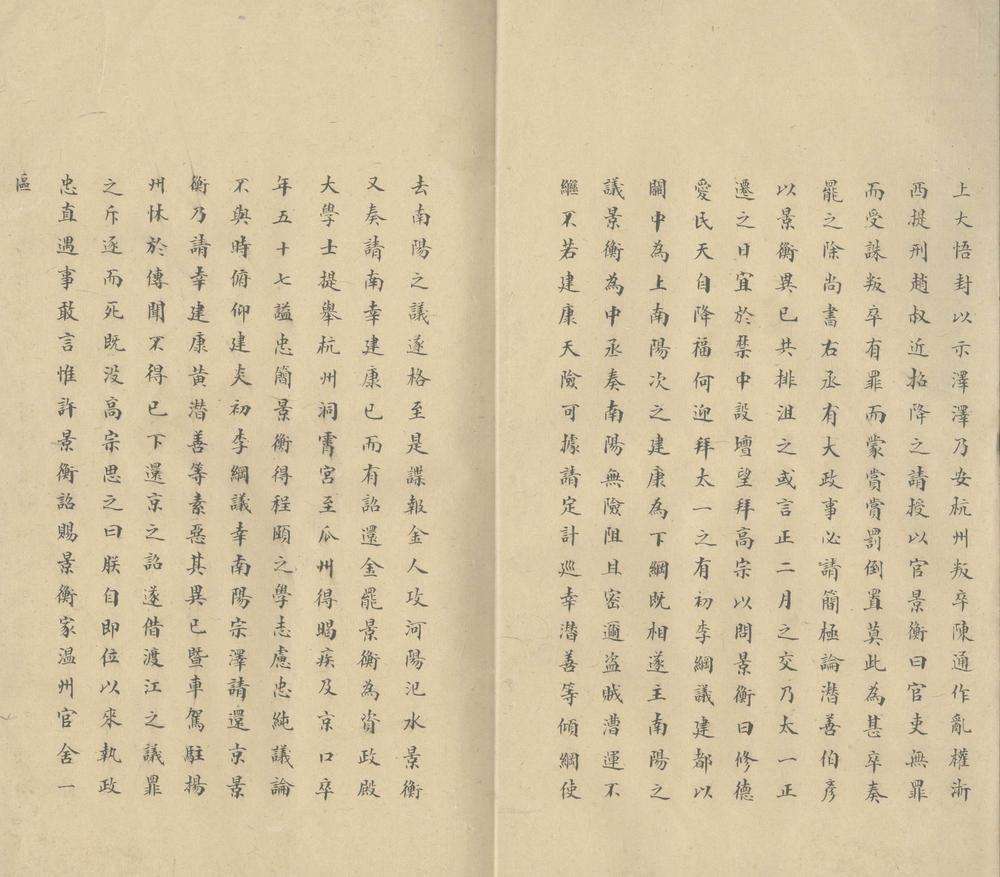 上大悟封以示澤澤乃安杭州叛卒陳通作亂權浙
西提刑趙叔近招降之請授以官景衡曰官吏無罪
而受誅叛卒有罪而蒙賞賞罰倒置莫此為甚卒奏
罷之除尚書右丞有大政事必請簡極論潛善伯彥
以景衡異已共排沮之或言正二月之交乃太一正
遷之日宜於禁中設壇望拜高宗以問景衡曰修德
愛民天自降福何迎拜太一之有初李綱議建都以
關中為上南陽次之建康為下綱既相遂主南陽之
議景衡為中丞奏南陽無險阻且密邇盜賊漕運不
繼不若建康天險可據請定計巡幸潛善等傾綱使
去南陽之議遂格至是諜報金人攻河陽汜水景衡
又奏請南幸建康已而有詔還金罷景衡為資政殿
大學士提舉杭州洞霄宮至瓜州得暍疾及京口卒
年五十七謚忠簡景衡得程頤之學志慮忠純議論
不與時俯仰建炎初李綱議幸南陽宗澤請還京景
衡乃請幸建康黃潛善等素惡其異已暨車駕駐揚
州怵於傳聞不得已下還京之詔遂借渡江之議罪
之斥逐而死既没高宗思之曰朕自即位以來執政
忠直遇事敢言惟許景衡詔賜景衡家温州官舍一
區